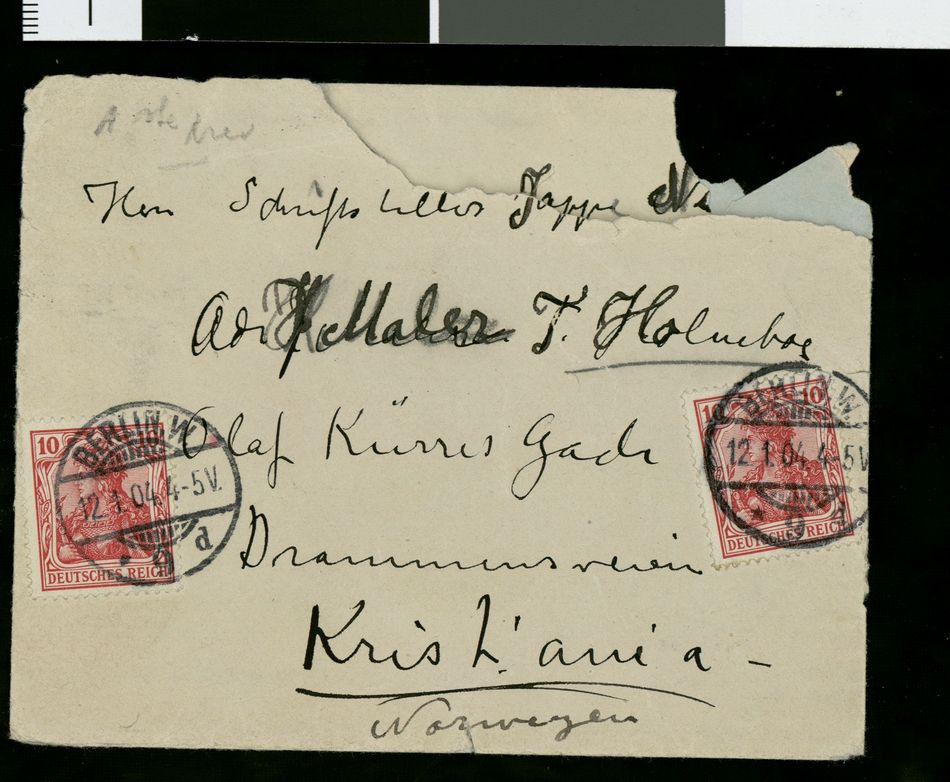 Herr Schriftsteller Jappe
Adr Maler T. Holmboe
Olaf Kürres Gade
Drammensveien
Kristiania –
Norwegen
10
BERLIN W
12.1.04.4-5V.
9 d
DEUTSCHES REICH
10 10
BERLIN W
12.1.04.4-5V
9
DEUTSCHES REICH